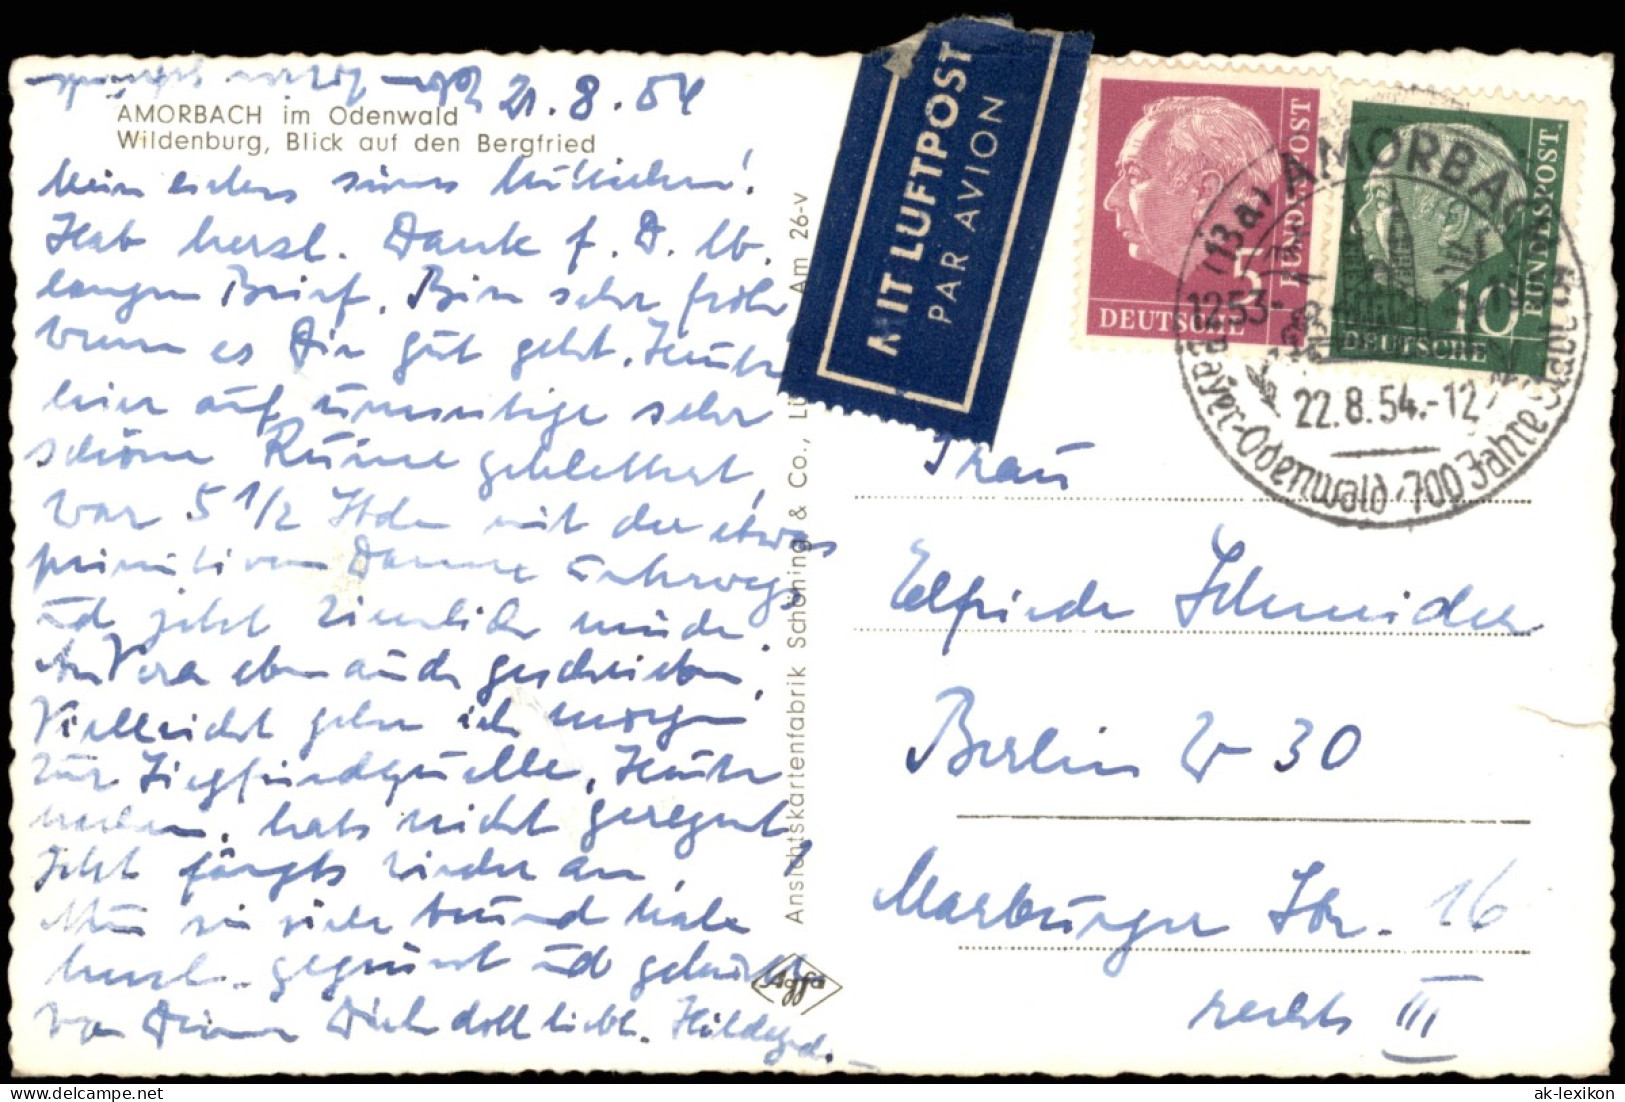 21.8.54
AMORBACH im Odenwald
Wildenburg, Blick auf den Bergfried
Hab herzl. Dank f. D. lb.
langen Brief. Bin sehr froh,
wenn es Dir gut geht. Heute
hier auf sehr
schöne Ruine geklettert,
war 5 1/2 Stdn mit der etwas
primitiven Dame unterwegs
und jetzt ziemlich müde.
An Vera eben auch geschrieben.
Vielleicht gehen wir morgen
zur Siegfriedquelle. Heute
hats nicht geregnet
Jetzt fängts wieder an.
Nun sei viele tausend Male
herzl. gegrüsst und geküsst
von Deiner Dich doll liebh. Hildegard.
Ansichtskartenfabrik Schöning & Co., Lü Am 26-v
Agfa
MIT LUFTPOST
PAR AVION
5
DEUTSCHE
BUNDESPOST
10
DEUTSCHE
BUNDESPOST
(13a) AMORBACH
1253-
22.8.54.-12
Bayer-Odenwald · 700 Jahre Stadt
Frau
Elfriede Schneider
Berlin W 30
Marburger Str. 16
rechts III
ak-lexikon